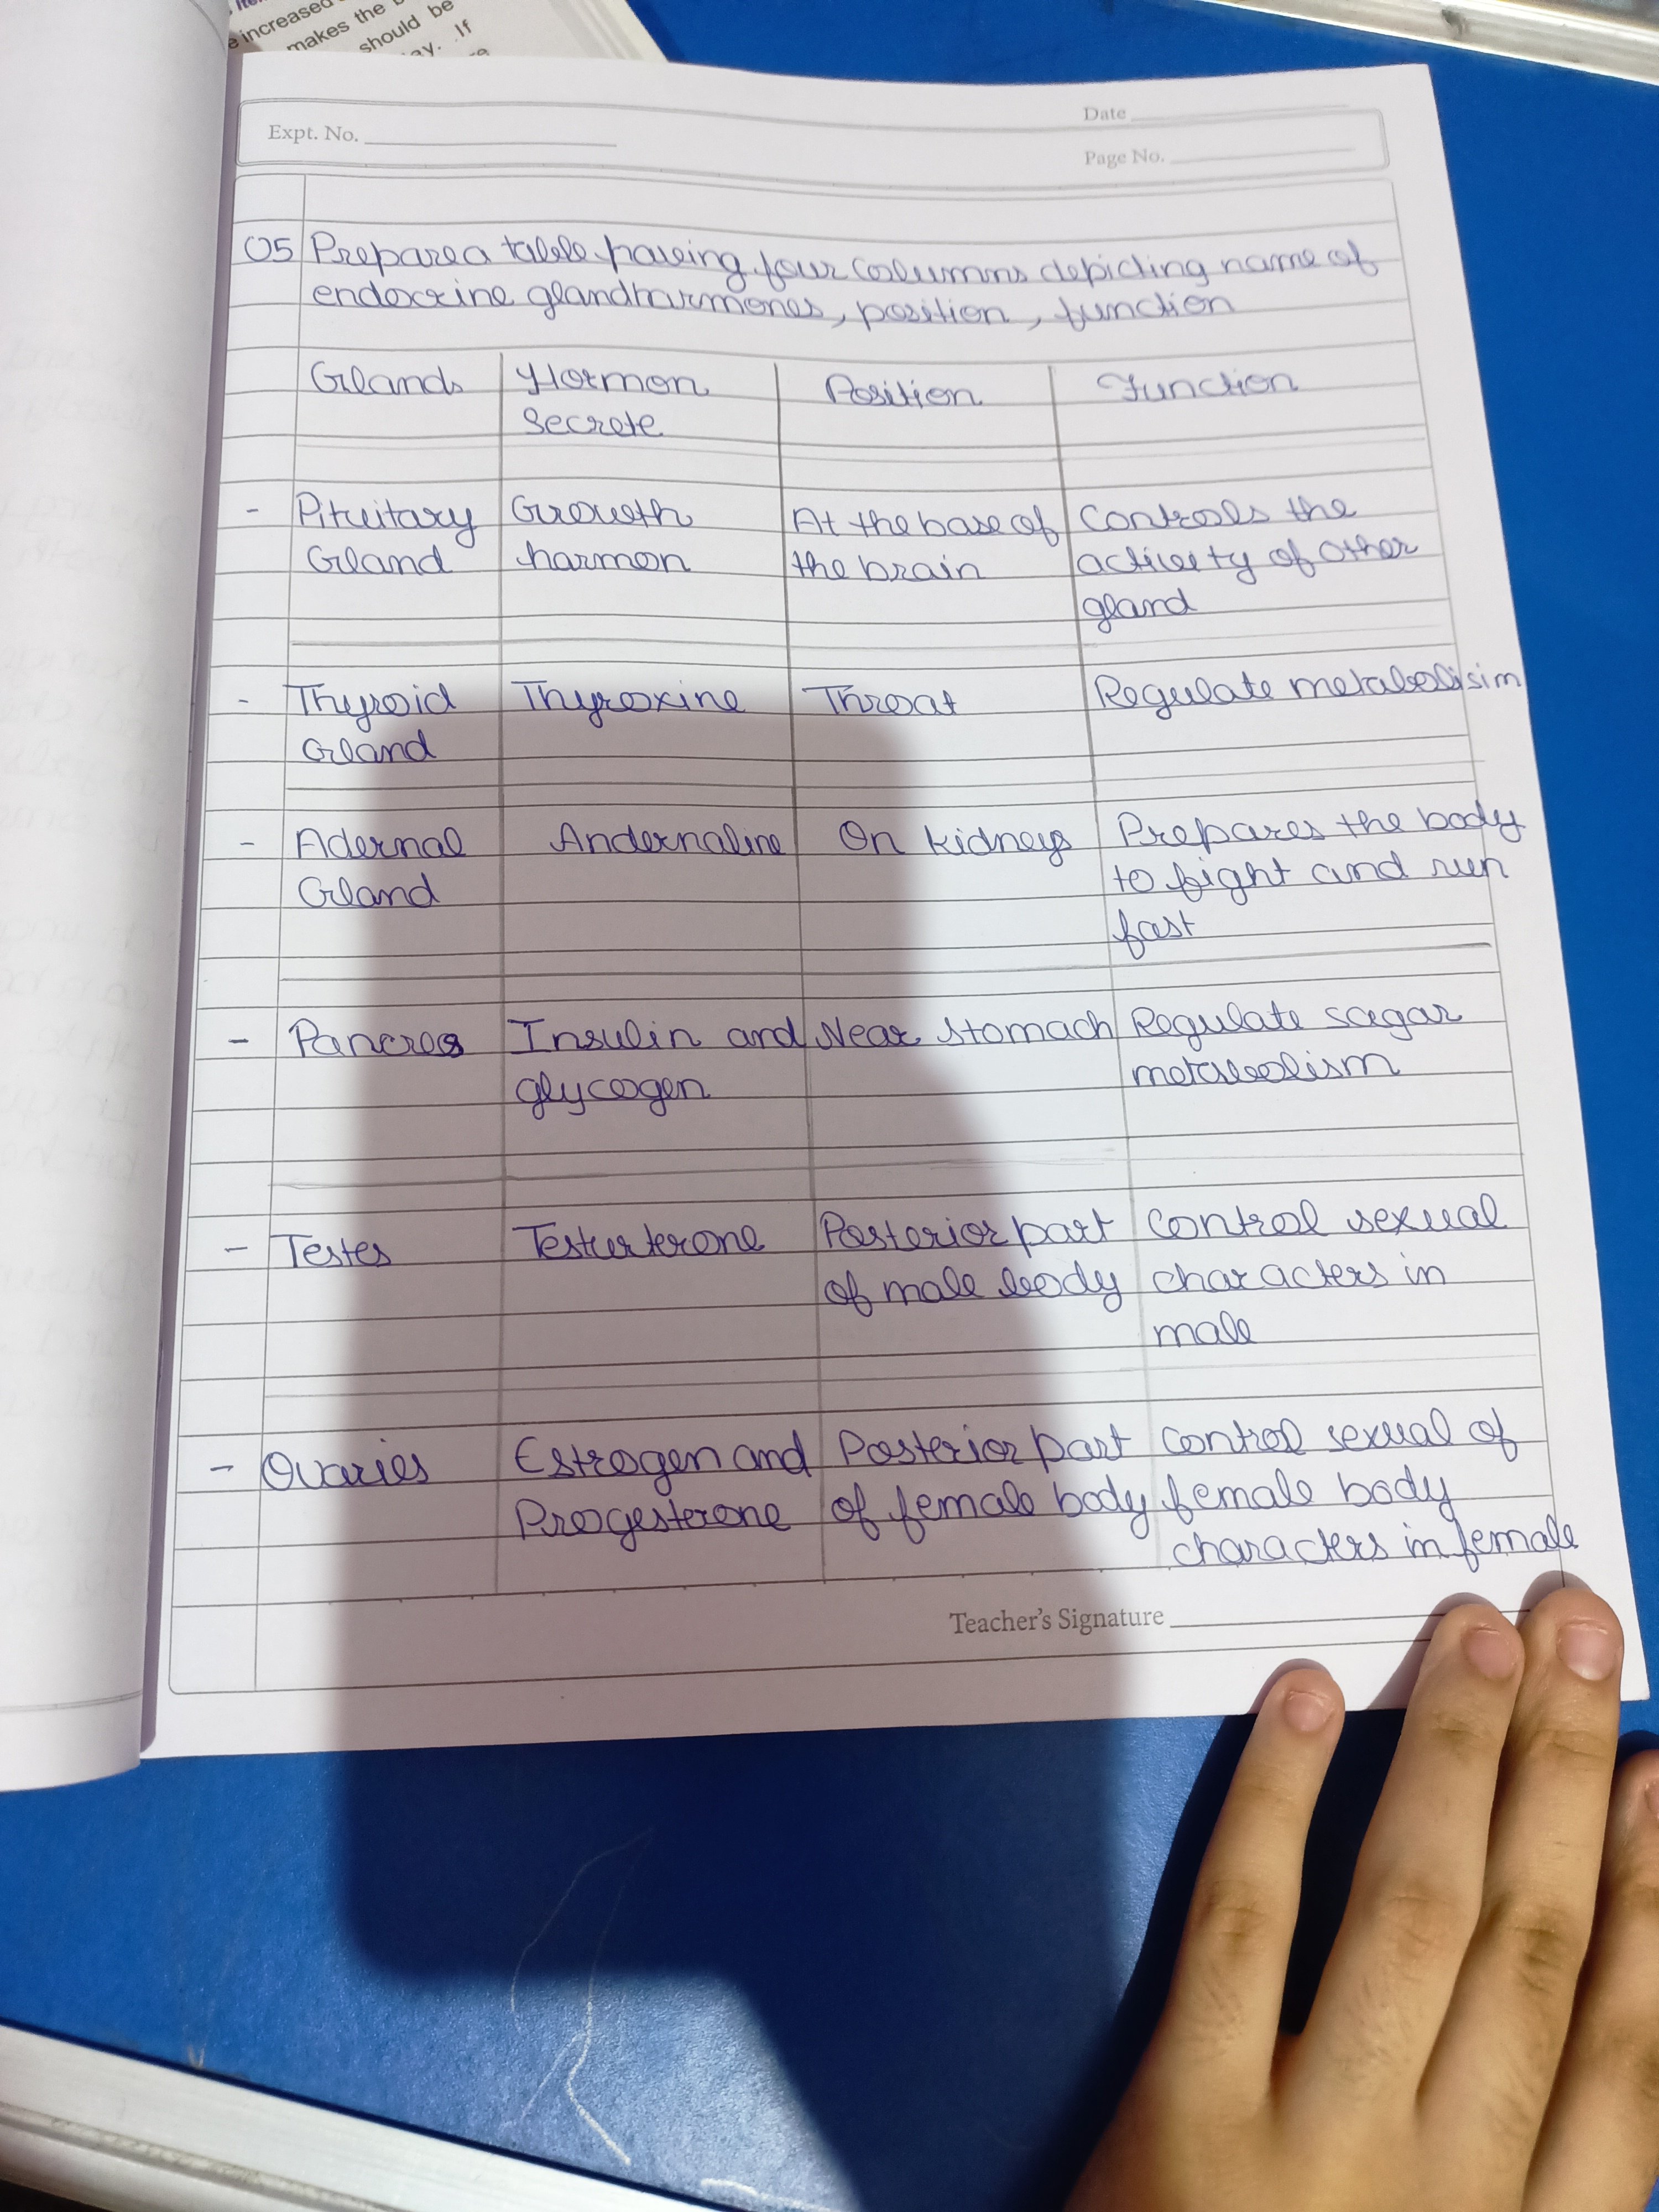 e increased
makes the
should be
ay. If
Expt. No.
Date
Page No.
Q5 Prepare a table having four columns depicting name of
endocrine gland harmones, position, function
Glands Hormon Position Function
Secrete
- Pituitary Growth At the base of Controls the
Gland harmon the brain activity of other
gland
- Thyroid Thyroxine Throat Regulate metabolisim
Gland
- Adernal Andernaline On kidneys Prepares the body
Gland to fight and run
fast
- Pancreas Insulin and Near stomach Regulate sugar
glycogen metabolism
- Testes Testurterone Posterior part control sexual
of male body characters in
male
- Ovaries Estrogen and Posterior part control sexual of
Progesterone of female body female body
characters in female
Teacher's Signature